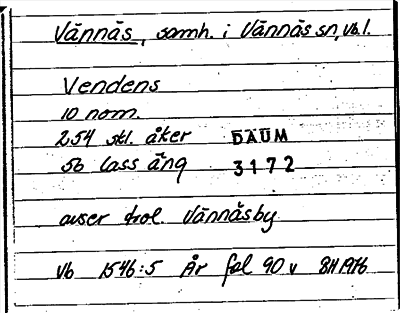 Vännäs, samh. i Vännäs sn, Vb. l.
Vendens
10 nom.
254 skl. åker DAUM
56 lass äng 3172
avser trol. Vännäsby
Vb 1546:5 År fol 90 v BH 1976